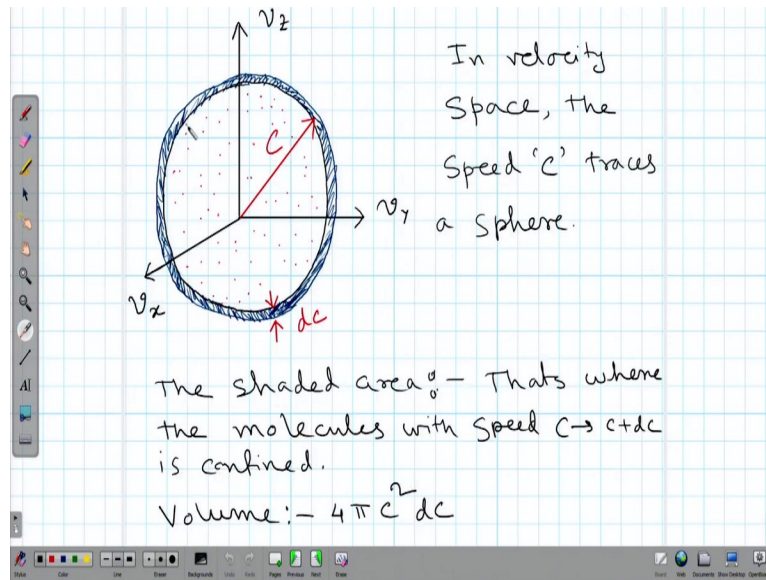 V_Z
In velocity
Space, the
C
Speed 'c' traces
V_Y
a sphere.
V_x
dc
The shaded area :- Thats where
the molecules with speed c→ c+dc
is confined.
Volume :- 4πc²dc
AI
Stylus
Color
Line
Eraser
Backgrounds
Undo
Redo
Pages
Previous
Next
Erase
Board
Web
Documents
Show Desktop